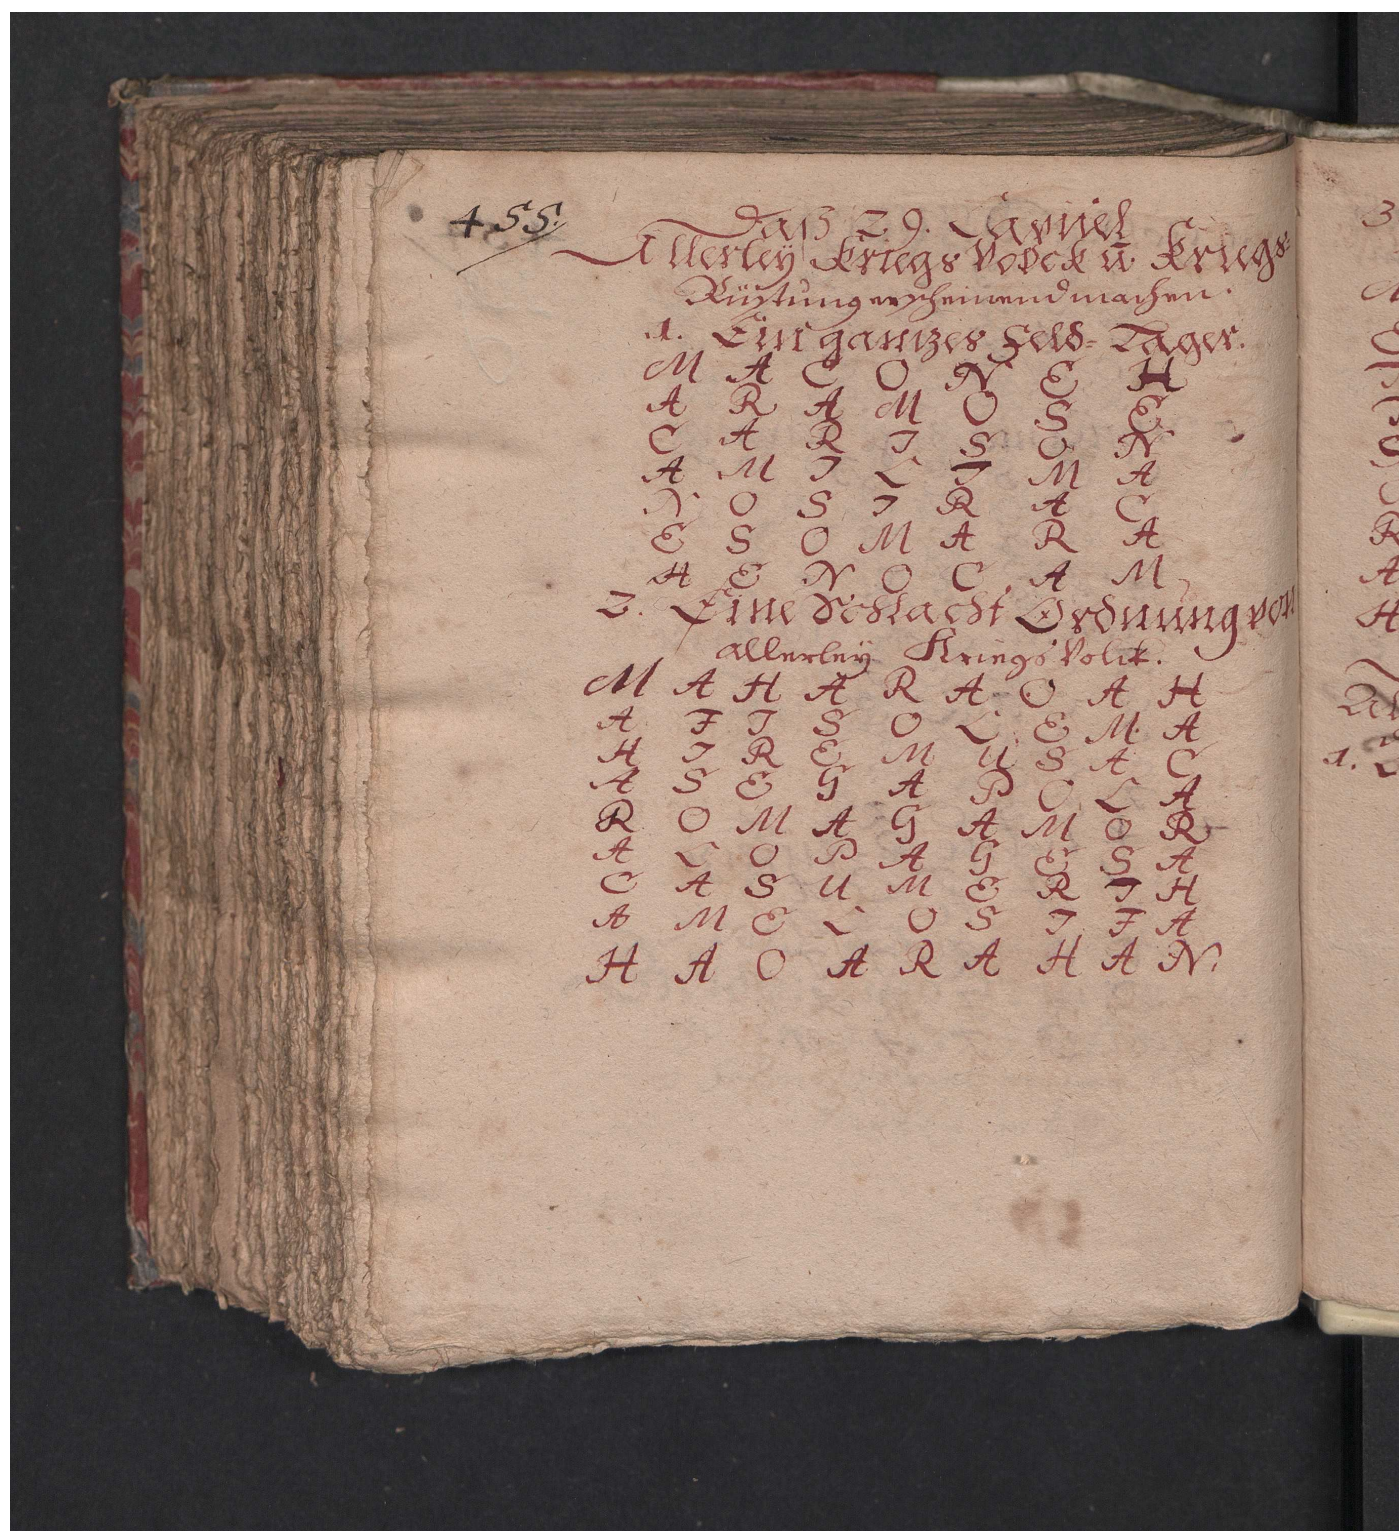 455.
Daß 29. Capitel
Allerley Kriegs Volck ū Kriegs-
Rüstung erscheinend machen.
1. Ein gantzes Feld-Lager.
M A C O N E H
A R A M O S E
C A R I S O N
A M I L I M A
N O S I R A C
E S O M A R A
H E N O C A M
2. Eine Schlacht Ordnung von
allerley Kriegs Volck.
M A H A R A O A H
A F I S O L E M A
H I R E M U S A C
A S E G A P O L A
R O M A G A M O R
A L O P A G E S A
C A S U M E R I H
A M E L O S I F A
H A O A R A H A N.